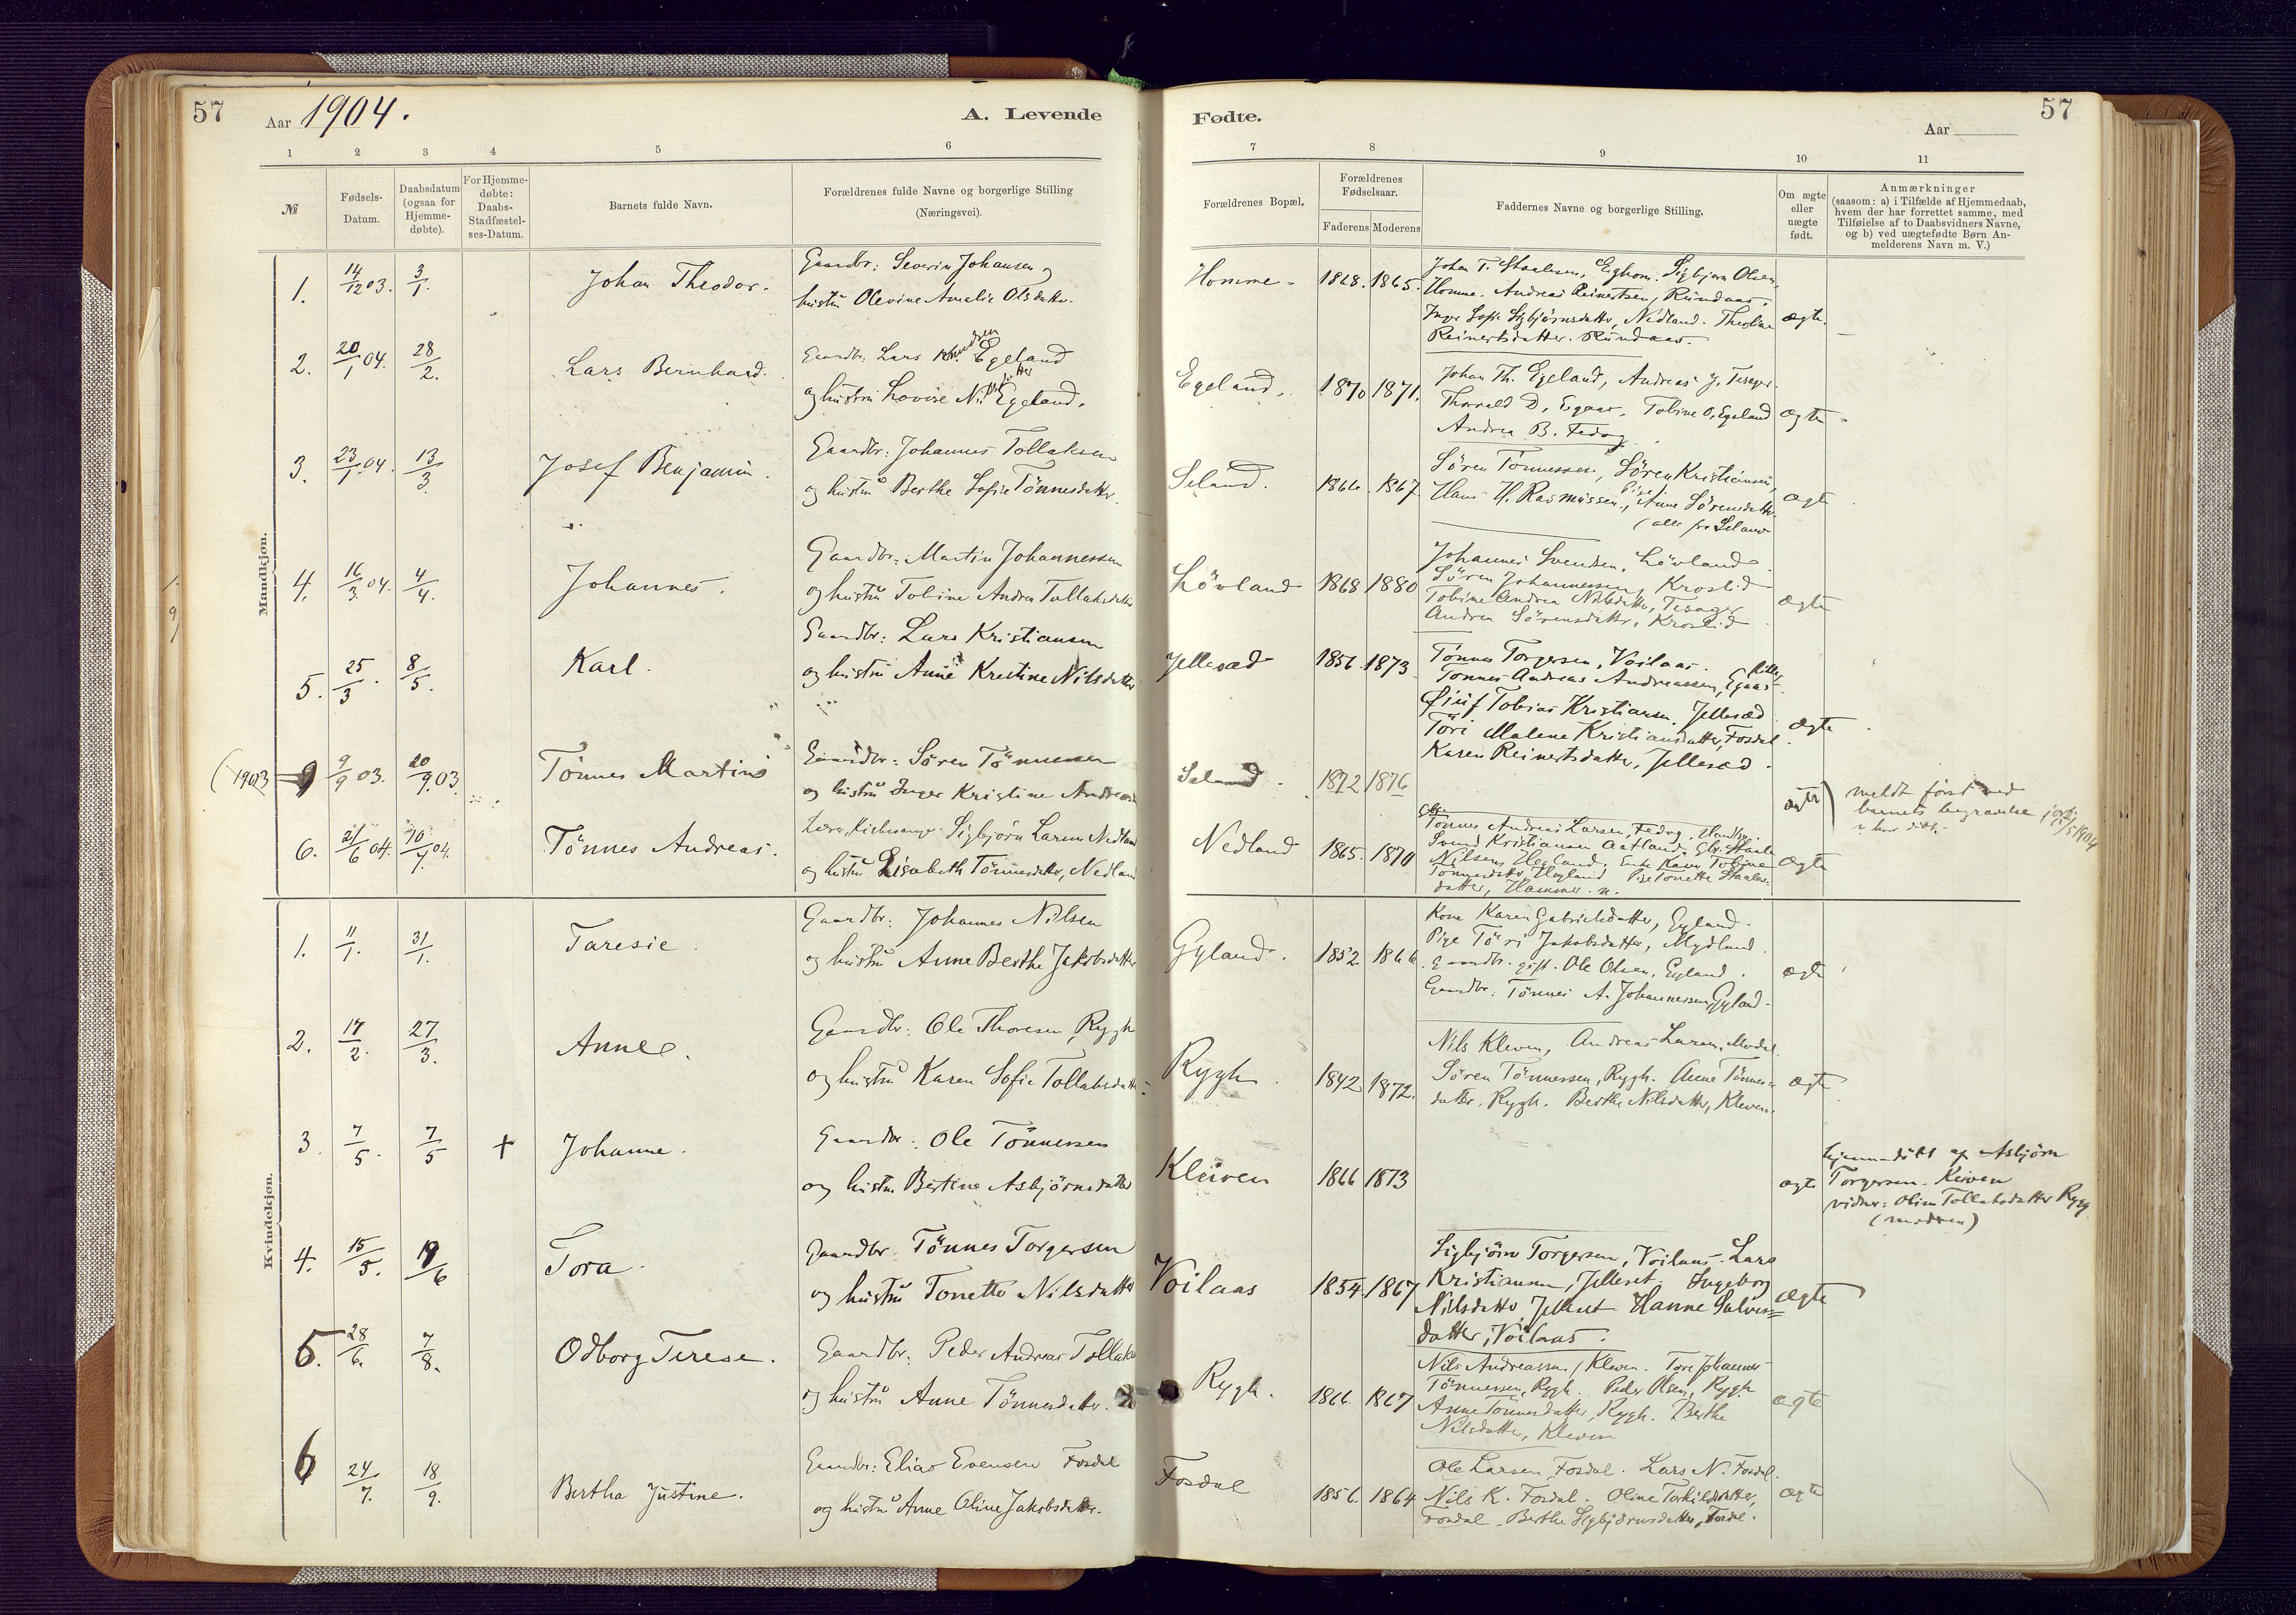 57
Aar 1904.
A. Levende
Fødte.
Aar
57
1 2 3 4 5 6
7 8 9 10 11
№
Fødsels-
Datum.
Daabsdatum
(ogsaa for
Hjemme-
døbte).
For Hjemme-
døbte:
Daabs-
Stadfæstel-
ses-Datum.
Barnets fulde Navn.
Forældrenes fulde Navne og borgerlige Stilling
(Næringsvei).
Forældrenes Bopæl.
Forældrenes
Fødselsaar.
Faderens Moderens
Faddernes Navne og borgerlige Stilling.
Om ægte
eller
uægte
født.
Anmærkninger
(saasom: a) i Tilfælde af Hjemmedaab,
hvem der har forrettet samme, med
Tilføielse af to Daabsvidners Navne,
og b) ved uægtefødte Børn An-
melderens Navn m. V.)
Mandkjøn.
1. 14/12 03. 3/1. Johan Theodor.
Gaardbr: Severin Johansen og
hustru Olevine Amalie Olsdatter.
Homme. 1868. 1865.
Johan T. Staalesen, Eghom. Sigbjørn Olsen,
Homme. Andreas Reinertsen, Rundaas.
Inger Sofie Sigbjørnsdatter, Nedland. Theoline
Reinertsdatter. Rundaas.
ægte.
2. 20/1 04. 28/2. Lars Bernhard.
Gaardbr: Lars Knudsen Egeland
og hustru Lovise N. datter Egeland.
Egeland. 1870 1871.
Johan Th. Egeland, Andreas J. Tesager
Thorvald D. Egaas, Tobine O. Egeland
Andrea B. Fedog
ægte
3. 23/1 04. 13/3. Josef Benjamin.
Gaardbr: Johannes Tollaksen
og hustru Berthe Sofie Tönnesdatter.
Seland. 1866. 1867
Sören Tönnessen, Sören Kristiansen,
Hans H. Rasmussen, Pige Anne Sörensdatter
(alle fra Seland
ægte
4. 16/3 04. 4/4. Johannes.
Gaardbr: Martin Johannessen
og hustru Tobine Andrea Tollaksdatter
Lövland 1868 1880
Johannes Svendsen, Lövland.
Sören Johannessen, Kroslid
Tobine Andrea Nilsdatter, Tesager
Andrea Sörensdatter, Kroslid
ægte
5. 25/3. 8/5. Karl.
Gaardbr: Lars Kristiansen
og hustru Anne Kristine Nilsdatter
Jellesæd 1856. 1873
Tönnes Torgersen, Voilaas.
Tönnes Andreas Andreassen, Egaas lille
Tobias Kristiansen, Jellesæd
Töri Malene Kristiansdatter, Fosdal.
Karen Reinertsdatter, Jellesæd.
ægte
(1903 9 9/9 03. 20/9. 03. Tönnes Martin
Gaardbr: Sören Tönnessen
og hustru Inger Kristine Andreasd
Seland. 1872 1876
ægte
meldt först ved
barnets begravelse
6. 21/6 04. 10/7 04. Tönnes Andreas.
Lærer, Kirkesanger Sigbjörn Larsen Nedland
og hustru Elisabeth Tönnesdatter, Nedland
Nedland 1865. 1870
Tönnes Andreas Larsen, Fedog.
Svend Kristiansen Aatland. Gbr. Staale
Nilsen, Hegland. Enke Karen Tobine
Tönnesdatter Hegland Pige Tonette Staales-
datter, Hammer.
ægte
Kvindekjøn.
1. 11/1. 31/1. Taresie.
Gaardbr: Johannes Nilsen
og hustru Anne Berthe Jakobsdatter
Gyland. 1852. 1866.
Kone Karen Gabrielsdatter, Gyland.
Pige Töri Jakobsdatter, Mydland
Gaardbr. gift. Ole Olsen, Gyland.
Gaardbr: Tönnes A. Johannessen, Gyland.
ægte
2. 17/2. 27/3. Anne.
Gaardbr: Ole Thoresen Rygh
og hustru Karen Sofie Tollaksdatter
Rygh. 1842 1872.
Nils Kleven, Andreas Larsen, Modal.
Sören Tönnessen, Rygh. Anne Tönnes-
datter. Rygh. Berthe Nilsdatter, Kleven.
ægte
3. 7/5. 7/5 + Johanne.
Gaardbr: Ole Tönnessen
og hustru Bertine Asbjörnsdatter
Kleiven 1866 1873
ægte
hjemmedöbt af Asbjörn
Torgersen. Kleiven
vidner: Oline Tollaksdatter Rygh
(moderen)
4. 15/5. 19/6 Tora.
Gaardbr. Tönnes Torgersen
og hustru Tonette Nilsdatter
Voilaas 1854 1867
Sigbjörn Torgersen, Voilaas. Lars
Kristiansen, Jelleset. Ingeborg
Nilsdatter Jelleset Hanne Salves=
datter, Voilaas.
ægte
5. 28/6. 7/8. Odborg Terese.
Gaardbr: Peder Andreas Tollaks
og hustru Anne Tönnesdatter.
Rygh. 1866. 1867
Nils Andreassen, Kleven. Tore Johannes
Tönnessen, Rygh. Peder Olsen, Rygh
Anne Tönnesdatter, Rygh. Berthe
Nilsdatter, Kleven
ægte
6 24/7. 18/9. Bertha Justine.
Gaardbr: Elias Evensen Fosdal
og hustru Anne Oline Jakobsdatter.
Fosdal 1856. 1864
Ole Larsen Fosdal. Lars N. Fosdal.
Nils K. Fosdal. Oline Torkildsdatter,
Fosdal. Berthe Sigbjörnsdatter, Fosdal.
ægte